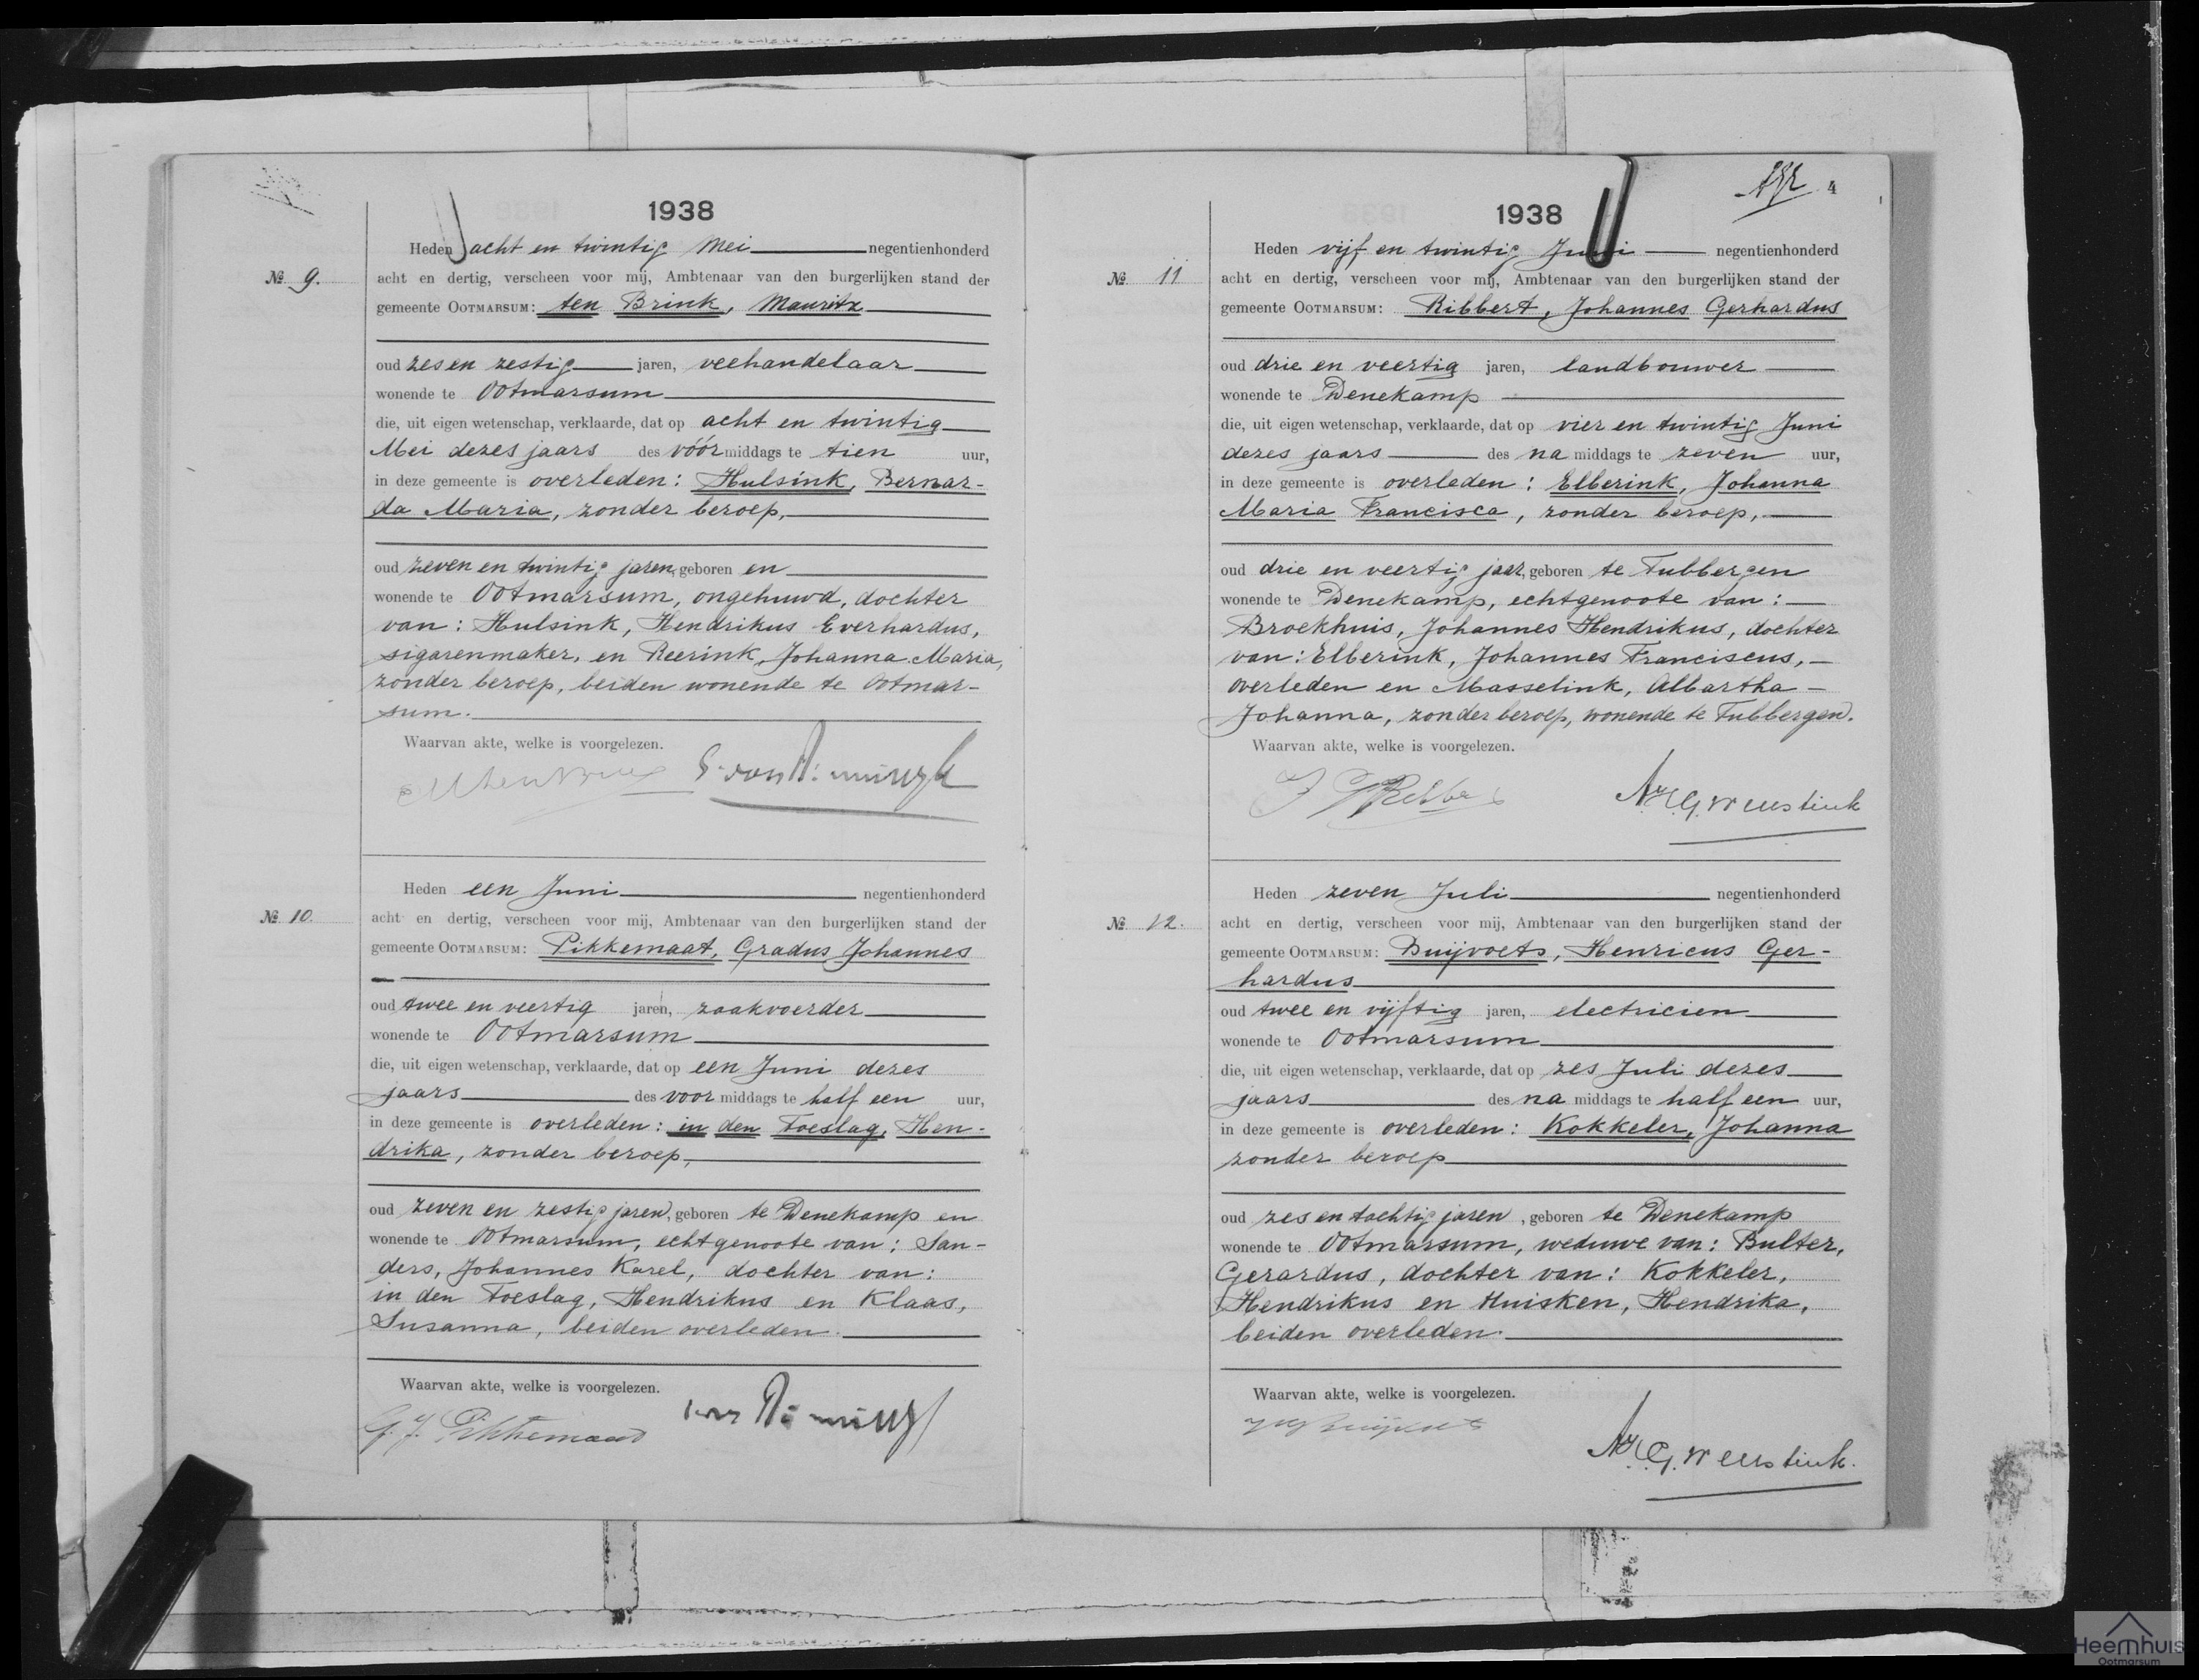 1938
Heden acht en twintig Mei negentienhonderd
№ 9. acht en dertig, verscheen voor mij, Ambtenaar van den burgerlijken stand der
gemeente OOTMARSUM: ten Brink, Mauritz
oud zes en zestig jaren, veehandelaar
wonende te Ootmarsum
die, uit eigen wetenschap, verklaarde, dat op acht en twintig
Mei dezes jaars des vóór middags te tien uur,
in deze gemeente is overleden: Hulsink, Bernar-
da Maria, zonder beroep,
oud zeven en twintig jaren, geboren en
wonende te Ootmarsum, ongehuwd, dochter
van: Hulsink, Hendrikus Everhardus,
sigarenmaker, en Reerink, Johanna Maria,
zonder beroep, beiden wonende te Ootmar-
sum.
Waarvan akte, welke is voorgelezen.
Heden een Juni negentienhonderd
№ 10. acht en dertig, verscheen voor mij, Ambtenaar van den burgerlijken stand der
gemeente OOTMARSUM: Pikkemaat, Gradus Johannes
oud twee en veertig jaren, zaakvoerder
wonende te Ootmarsum
die, uit eigen wetenschap, verklaarde, dat op een Juni dezes
jaars des voor middags te half een uur,
in deze gemeente is overleden: in den Toeslag, Hen-
drika, zonder beroep,
oud zeven en zestig jaren, geboren te Denekamp en
wonende te Ootmarsum, echtgenoote van: San-
ders, Johannes Karel, dochter van:
in den Toeslag, Hendrikus en Klaas,
Susanna, beiden overleden.
Waarvan akte, welke is voorgelezen.
G. J. Pikkemaat
4
1938
Heden vijf en twintig Juni negentienhonderd
№ 11 acht en dertig, verscheen voor mij, Ambtenaar van den burgerlijken stand der
gemeente OOTMARSUM: Ribbert, Johannes Gerhardus
oud drie en veertig jaren, landbouwer
wonende te Denekamp
die, uit eigen wetenschap, verklaarde, dat op vier en twintig Juni
dezes jaars des na middags te zeven uur,
in deze gemeente is overleden: Elberink, Johanna
Maria Francisca, zonder beroep,
oud drie en veertig jaar, geboren te Tubbergen
wonende te Denekamp, echtgenoote van:
Broekhuis, Johannes Hendrikus, dochter
van: Elberink, Johannes Franciscus,
overleden en Masselink, Albartha
Johanna, zonder beroep, wonende te Tubbergen.
Waarvan akte, welke is voorgelezen.
Heden zeven Juli negentienhonderd
№ 12. acht en dertig, verscheen voor mij, Ambtenaar van den burgerlijken stand der
gemeente OOTMARSUM: Buijvoets, Henricus Ger-
hardus
oud twee en vijftig jaren, electricien
wonende te Ootmarsum
die, uit eigen wetenschap, verklaarde, dat op zes Juli dezes
jaars des na middags te half een uur,
in deze gemeente is overleden: Kokkeler, Johanna
zonder beroep
oud zes en tachtig jaren, geboren te Denekamp
wonende te Ootmarsum, weduwe van: Bulter,
Gerardus, dochter van: Kokkeler,
Hendrikus en Huisken, Hendrika,
beiden overleden.
Waarvan akte, welke is voorgelezen.
Heemhuis
Ootmarsum